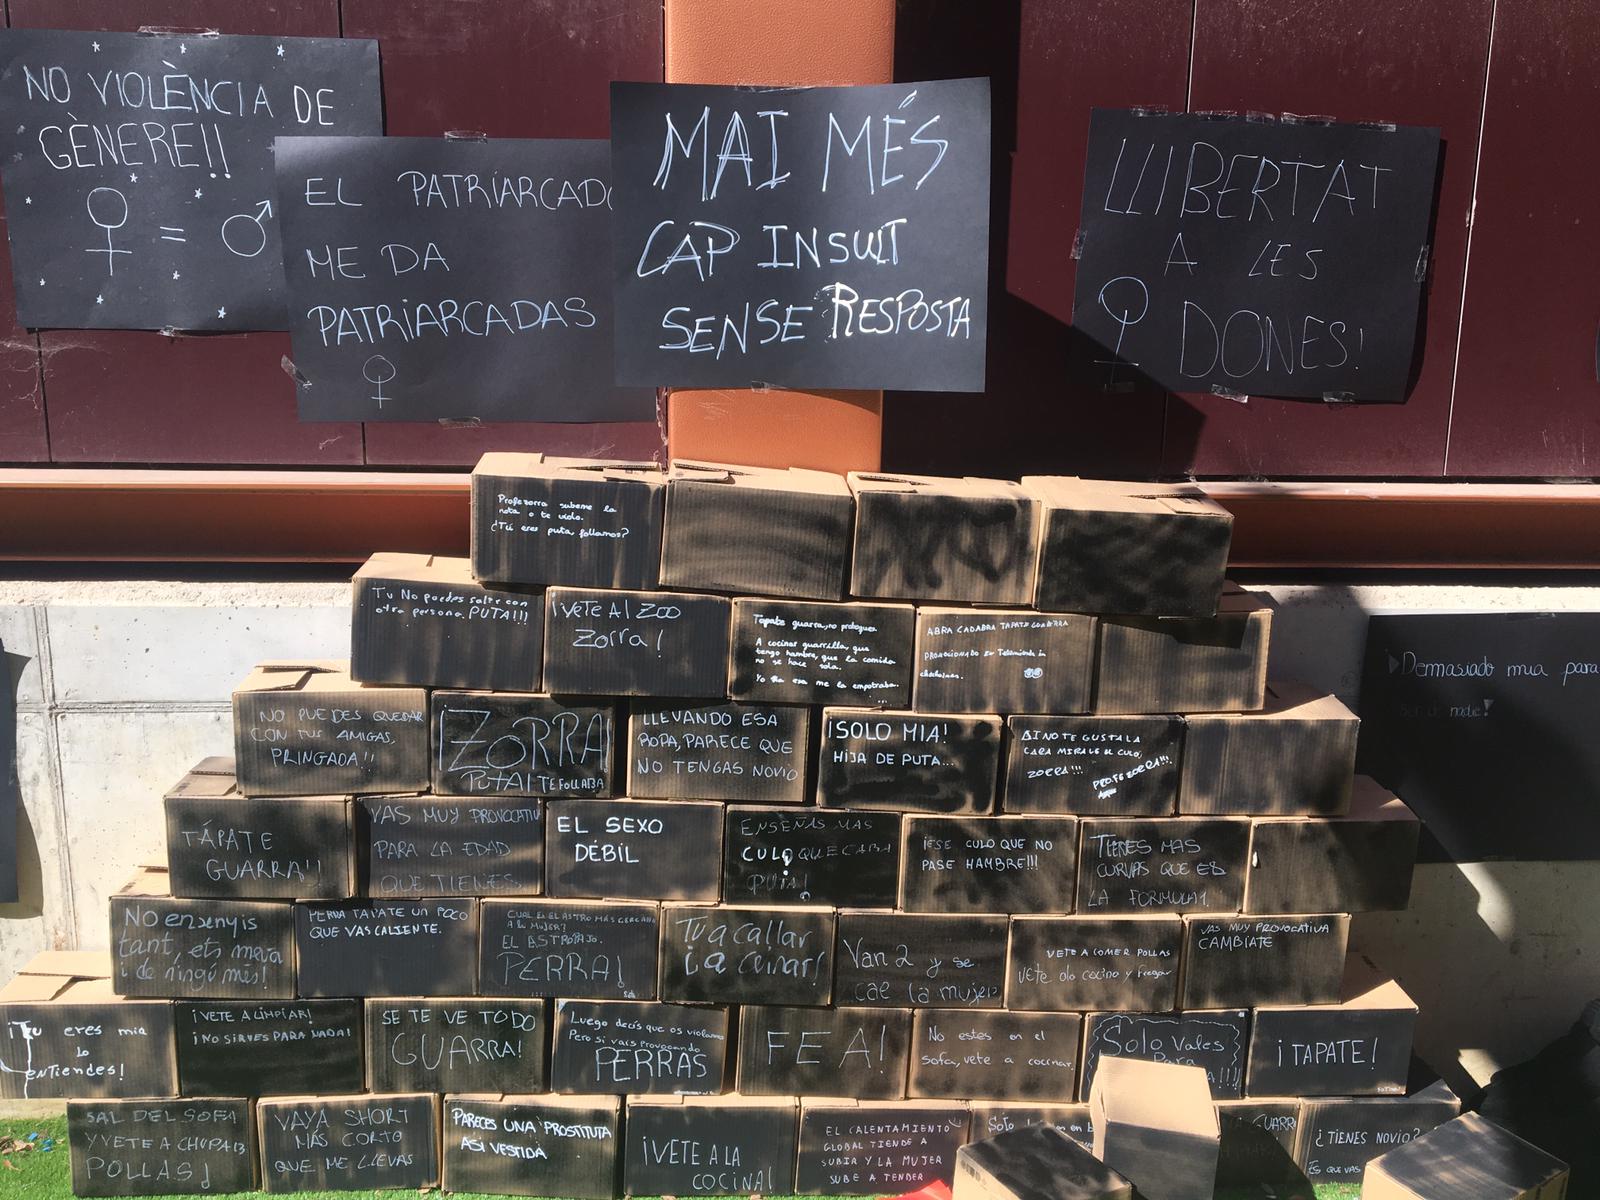 NO VIOLÈNCIA DE
GÈNERE!!
=
EL PATRIARCADO
ME DA
PATRIARCADAS
MAI MÉS
CAP INSULT
SENSE RESPOSTA
LLIBERTAT
A LES
DONES!
Profezorra subeme la
nota o te violo.
¿Tú eres puta, follamos?
Tu No puedes salir con
otra persona PUTA!!!
¡VETE Al ZOO
Zorra!
Tapate guarra, no
A cocinar guarrilla, que
tengo hambre, que la comida
no se hace sola.
Yo esa me la empotraba.
...
ABRA CADABRA TAPATE GUARRA
PROMOCIONADO EN
Demasiado mia para
ser de nadie!
NO PUEDES QUEDAR
CON TUS AMIGAS,
PRINGADA!!
¡ZORRA!
PUTA! TE FOLLABA
LLEVANDO ESA
ROPA, PARECE QUE
NO TENGAS NOVIO
¡SOLO MIA!
HIJA DE PUTA...
SI NO TE GUSTA LA
CARA MIRALE EL CULO,
ZORRA!!!
PROFEZORRA!!!
TÁPATE
GUARRA!!
VAS MUY PROVOCATIVA
PARA LA EDAD
QUE TIENES
EL SEXO
DÉBIL
ENSEÑAS MAS
CULO QUE CARA
PUTA!
¡ESE CULO QUE NO
PASE HAMBRE!!!
TIENES MAS
CURVAS QUE EL
LA FORMULA 1.
No ensenyis
tant, ets meva
i de ningú més!
PERRA TAPATE UN POCO
QUE VAS CALIENTE.
CUAL ES EL ASTRO MÁS CERCANO
A LA MUJER?
EL ASTROPAJO.
PERRA!
Tu a callar
i a cuinar!
Van 2 y se
cae la mujer
VETE A COMER POLLAS
Vete a la cocina y fregar
VAS MUY PROVOCATIVA
CAMBIATE
¡Tu eres mia
lo
entiendes!
¡VETE A LIMPIAR!
¡NO SIRVES PARA NADA!
SE TE VE TODO
GUARRA!
Luego decís que os violamos
Pero si vais provocando
PERRAS
FEA!
No estes en el
sofa, vete a cocinar.
Solo Vales
Para
A!!!!
¡TAPATE!
SAL DEL SOFA
Y VETE A CHUPAR
POLLAS!
VAYA SHORT
MÁS CORTO
QUE ME LLEVAS
PARECES UNA PROSTITUTA
ASI VESTIDA
¡VETE A LA
COCINA!
EL CALENTAMIENTO
GLOBAL TIENDE A
SUBIR Y LA MUJER
SUBE A TENDER
Solo
en
GUARRA
¿TIENES NOVIO?
ES QUE VAS